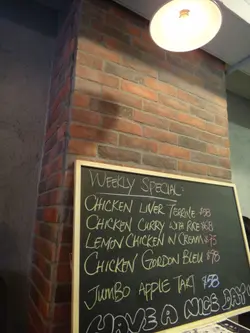 WEEKLY SPECIAL
CHICKEN LIVER TERRINE $58
CHICKEN CURRY WITH RICE $68
LEMON CHICKEN N CREAM $75
CHICKEN GORDON BLEU $78
JUMBO APPLE TART $58
HAVE A NICE DAY